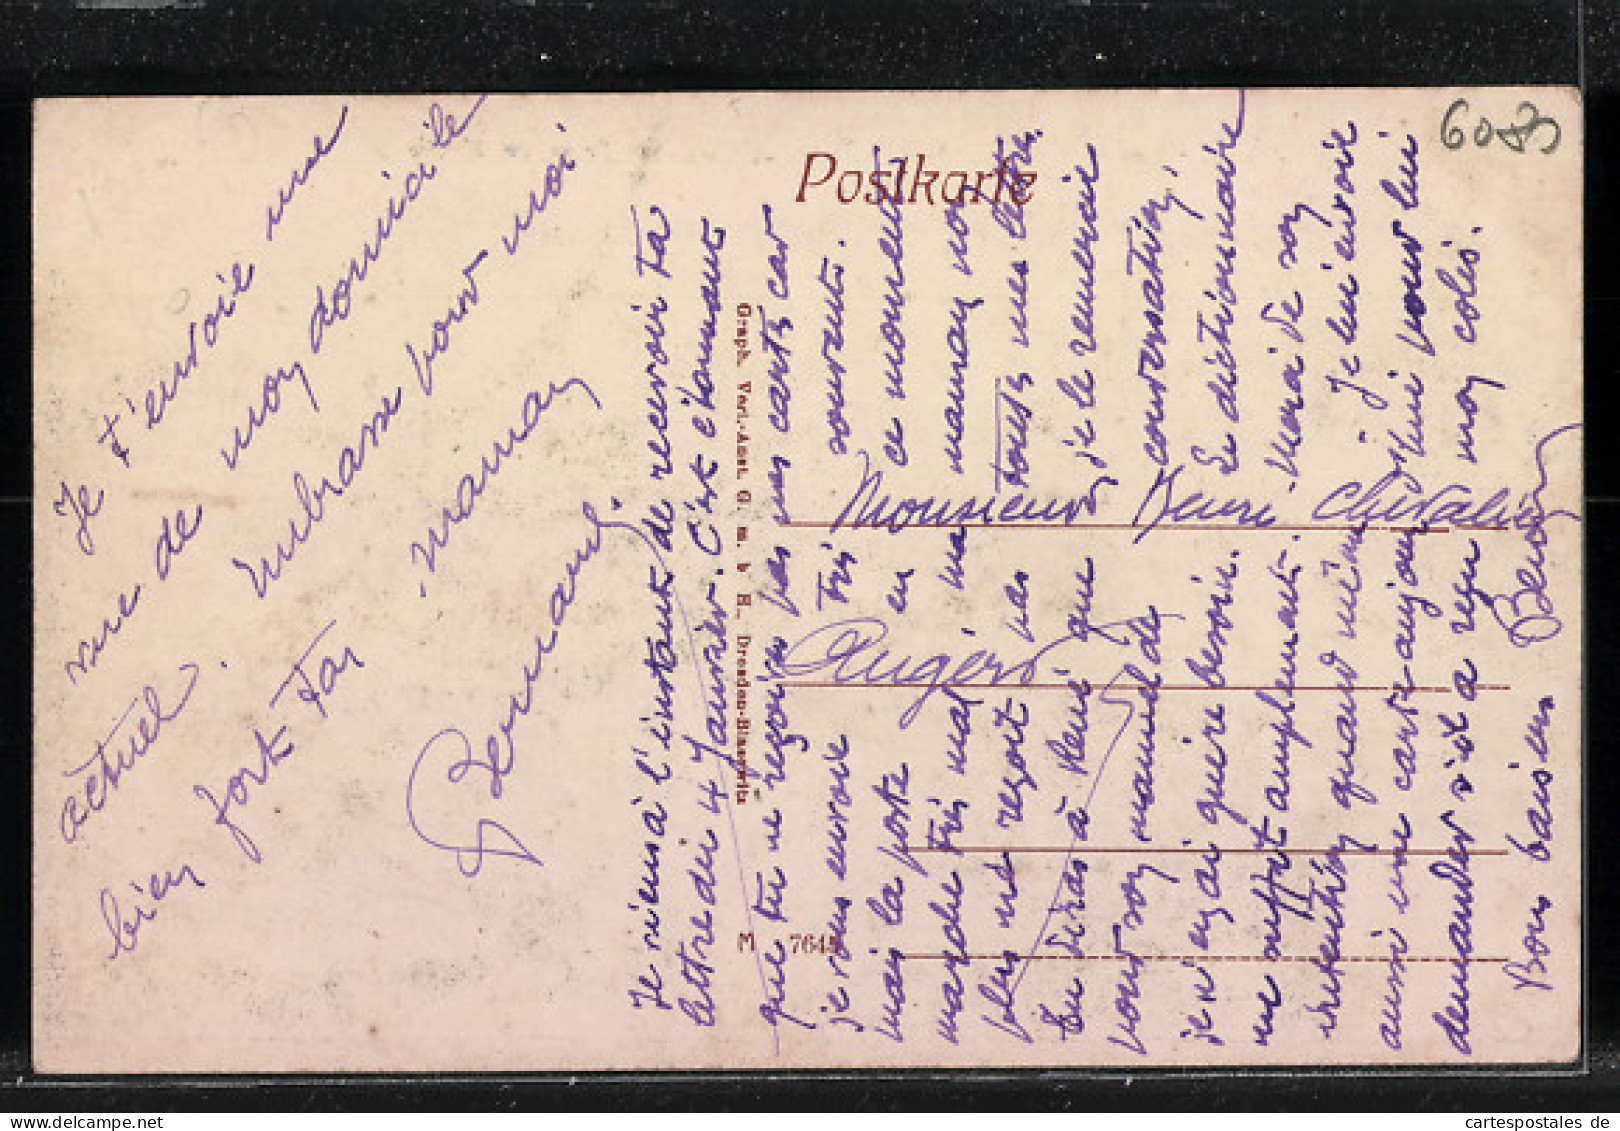 Je t'envoie une
vue de mon domicile
actuel. Embrasse pour moi
bien fort ta maman
Bernard.
Postkarte
6083
Je viens à l'instant de recevoir ta
lettre du 4 Janvier. C'est étonnant
que tu ne reçoives pas mes cartes car
je vous envoie très souvent.
mais la poste en ce moment
marche très mal, ma maman non
plus ne reçoit pas toutes mes lettres.
Tu diras à René que je le remercie
pour son manuel de conversation,
je n'en ai guère besoin. Le dictionnaire
me suffit amplement. Merci de son
intention quand même, je lui envoie
aussi une carte aujourd'hui pour lui
demander s'il a reçu mon colis.
Bons baisers
Monsieur Henri Chevalier
Angers
Graph. Verl.-Anst. G. m. b. H., Dresden-Blasewitz
M 764
cartespostales de